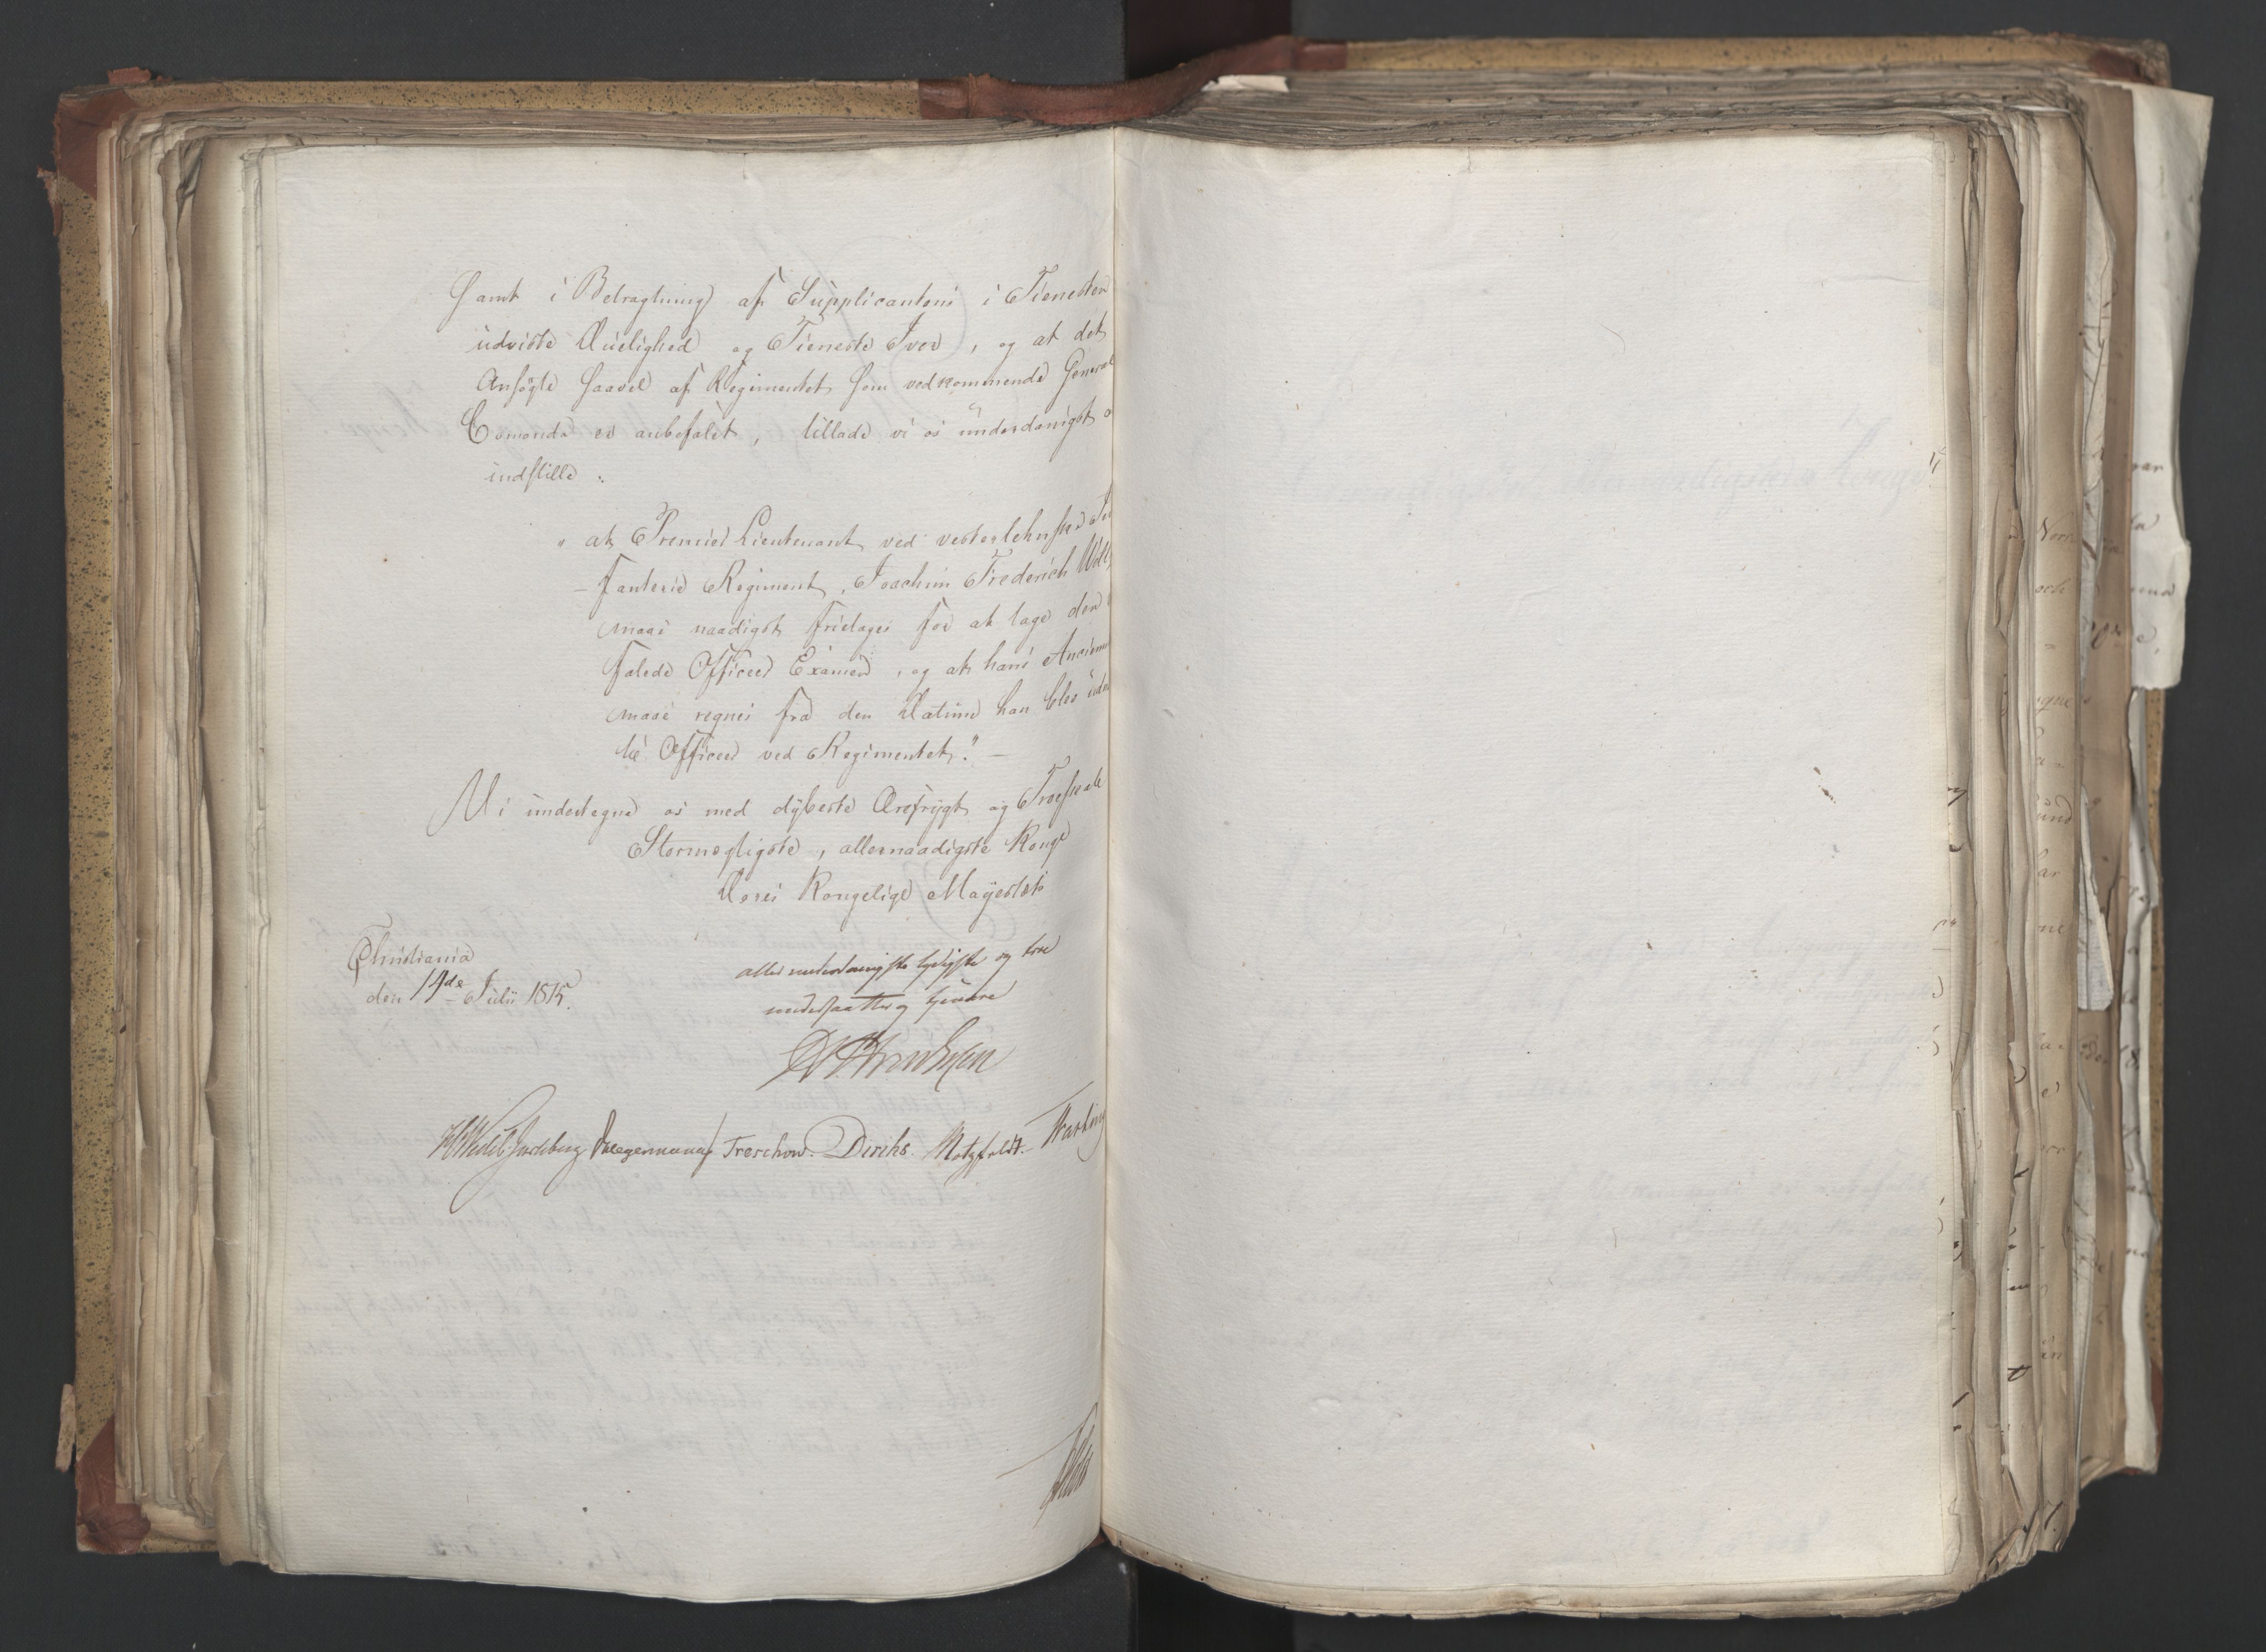 Samt i Betragtning af Supplicantens i Tienesten
udviste Duelighed og Tieneste Iver, og at det
Ansøgte saavel af Regimentet som vedkommende General
Comando er anbefalet, tillade vi os underdanigst
indstille:
" at Premier Lieutenant ved vesterlehnske In
- fanterie Regiment, Joachim Frederich
maae naadigst fritages for at tage den
falede Officeer Examen, og at hans Ancienne
maae regnes fra den Datum han blev
te Officeer ved Regimentet." —
Vi undertegne os med dybeste Ærefrygt og Troeskab
Stormægtigste, allernaadigste Konge
Deres Kongelige Mayestæts
Christiania
den 14de Julii 1815.
allerunderdanigste lydigste og troe
undersaatter og tienere
Hegermann Treschow. Diriks. Motzfeldt.